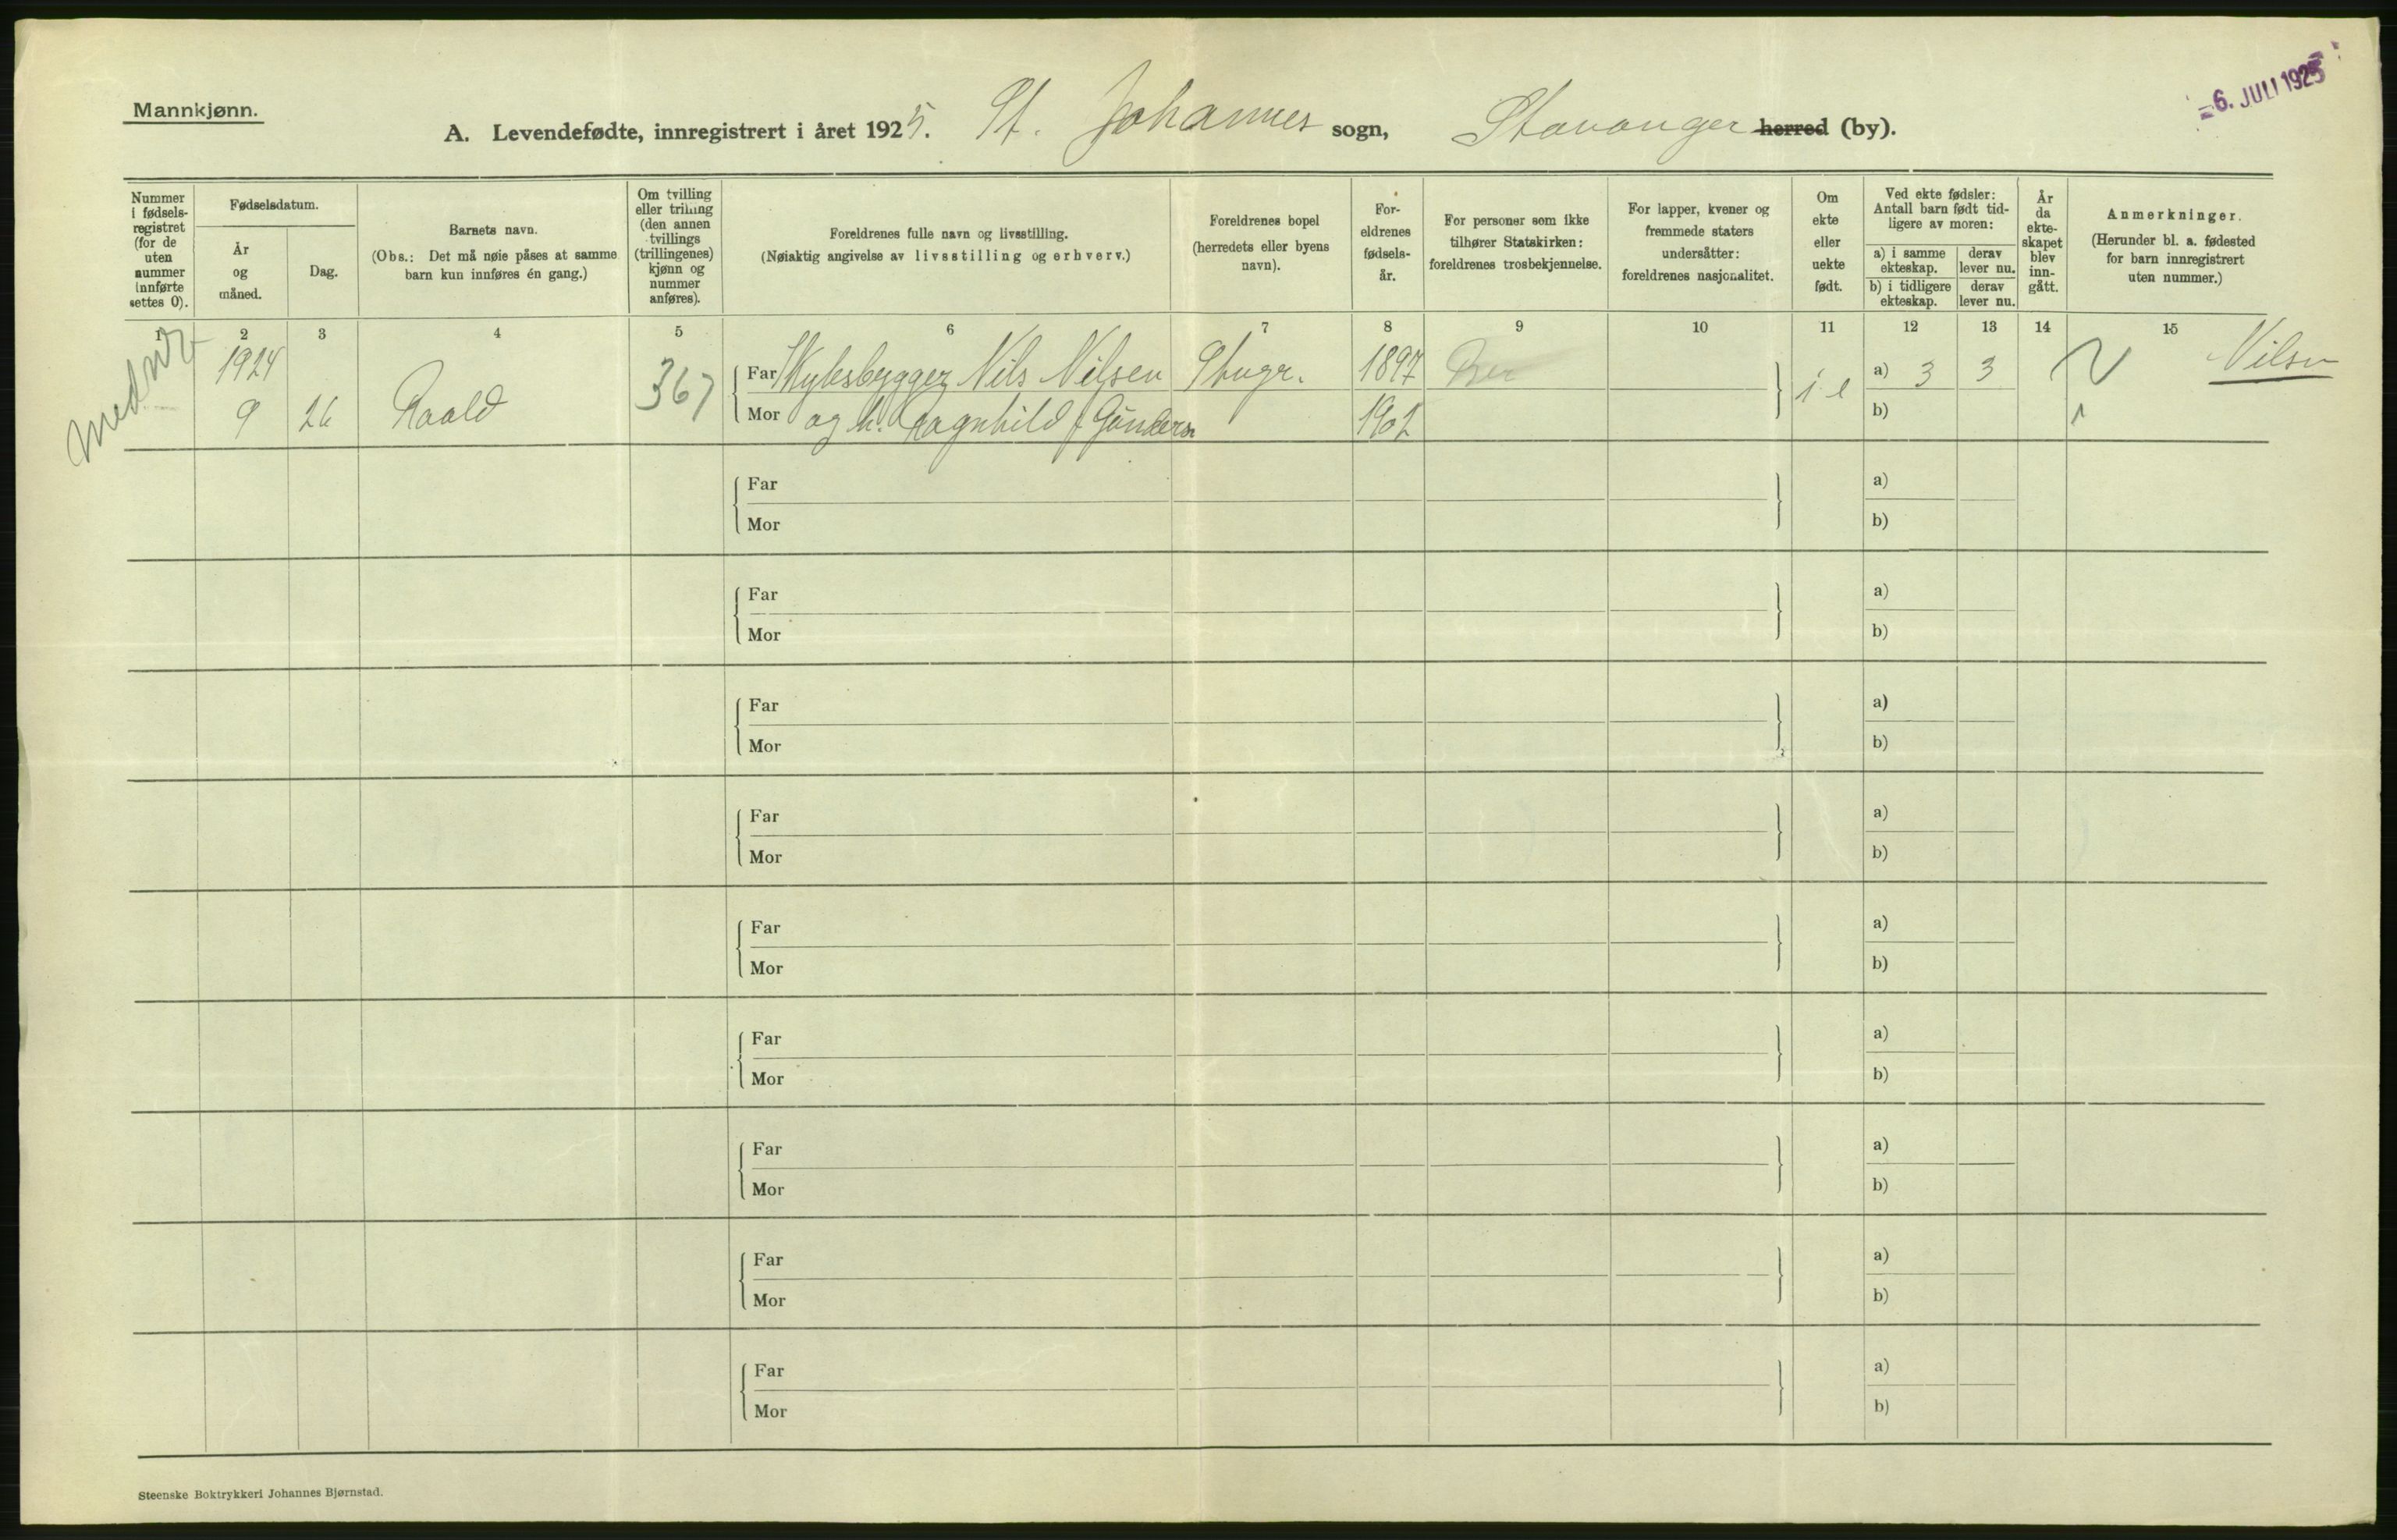 6. JULI 1925
Mannkjønn.
A. Levendefødte, innregistrert i året 1925. St. Johannes sogn, Stavanger herred (by).
Nummer i fødsels-registret (for de uten nummer innførte settes 0).
Fødselsdatum.
År og måned.
Dag.
Barnets navn.
(Obs.: Det må nøie påses at samme barn kun innføres én gang.)
Om tvilling eller trilling (den annen tvillings (trillingenes) kjønn og nummer anføres).
Foreldrenes fulle navn og livsstilling.
(Nøiaktig angivelse av livsstilling og erhverv.)
Foreldrenes bopel
(herredets eller byens navn).
For-eldrenes fødsels-år.
For personer som ikke tilhører Statskirken: foreldrenes trosbekjennelse.
For lapper, kvener og fremmede staters undersåtter: foreldrenes nasjonalitet.
Om ekte eller uekte født.
Ved ekte fødsler: Antall barn født tid-ligere av moren:
a) i samme ekteskap.
derav lever nu.
b) i tidligere ekteskap.
derav lever nu.
År da ekte-skapet blev inn-gått.
Anmerkninger.
(Herunder bl. a. fødested for barn innregistrert uten nummer.)
1 2 3 4 5 6 7 8 9 10 11 12 13 14 15
1924 Far Nils Nilsen Stvgr. 1897 a) 3 3 Nilsen
9 26 Raald 367 Mor og h. Ragnhild f. Gundersen 1902 i e b)
Far a)
Mor b)
Far a)
Mor b)
Far a)
Mor b)
Far a)
Mor b)
Far a)
Mor b)
Far a)
Mor b)
Far a)
Mor b)
Far a)
Mor b)
Far a)
Mor b)
Steenske Boktrykkeri Johannes Bjørnstad.